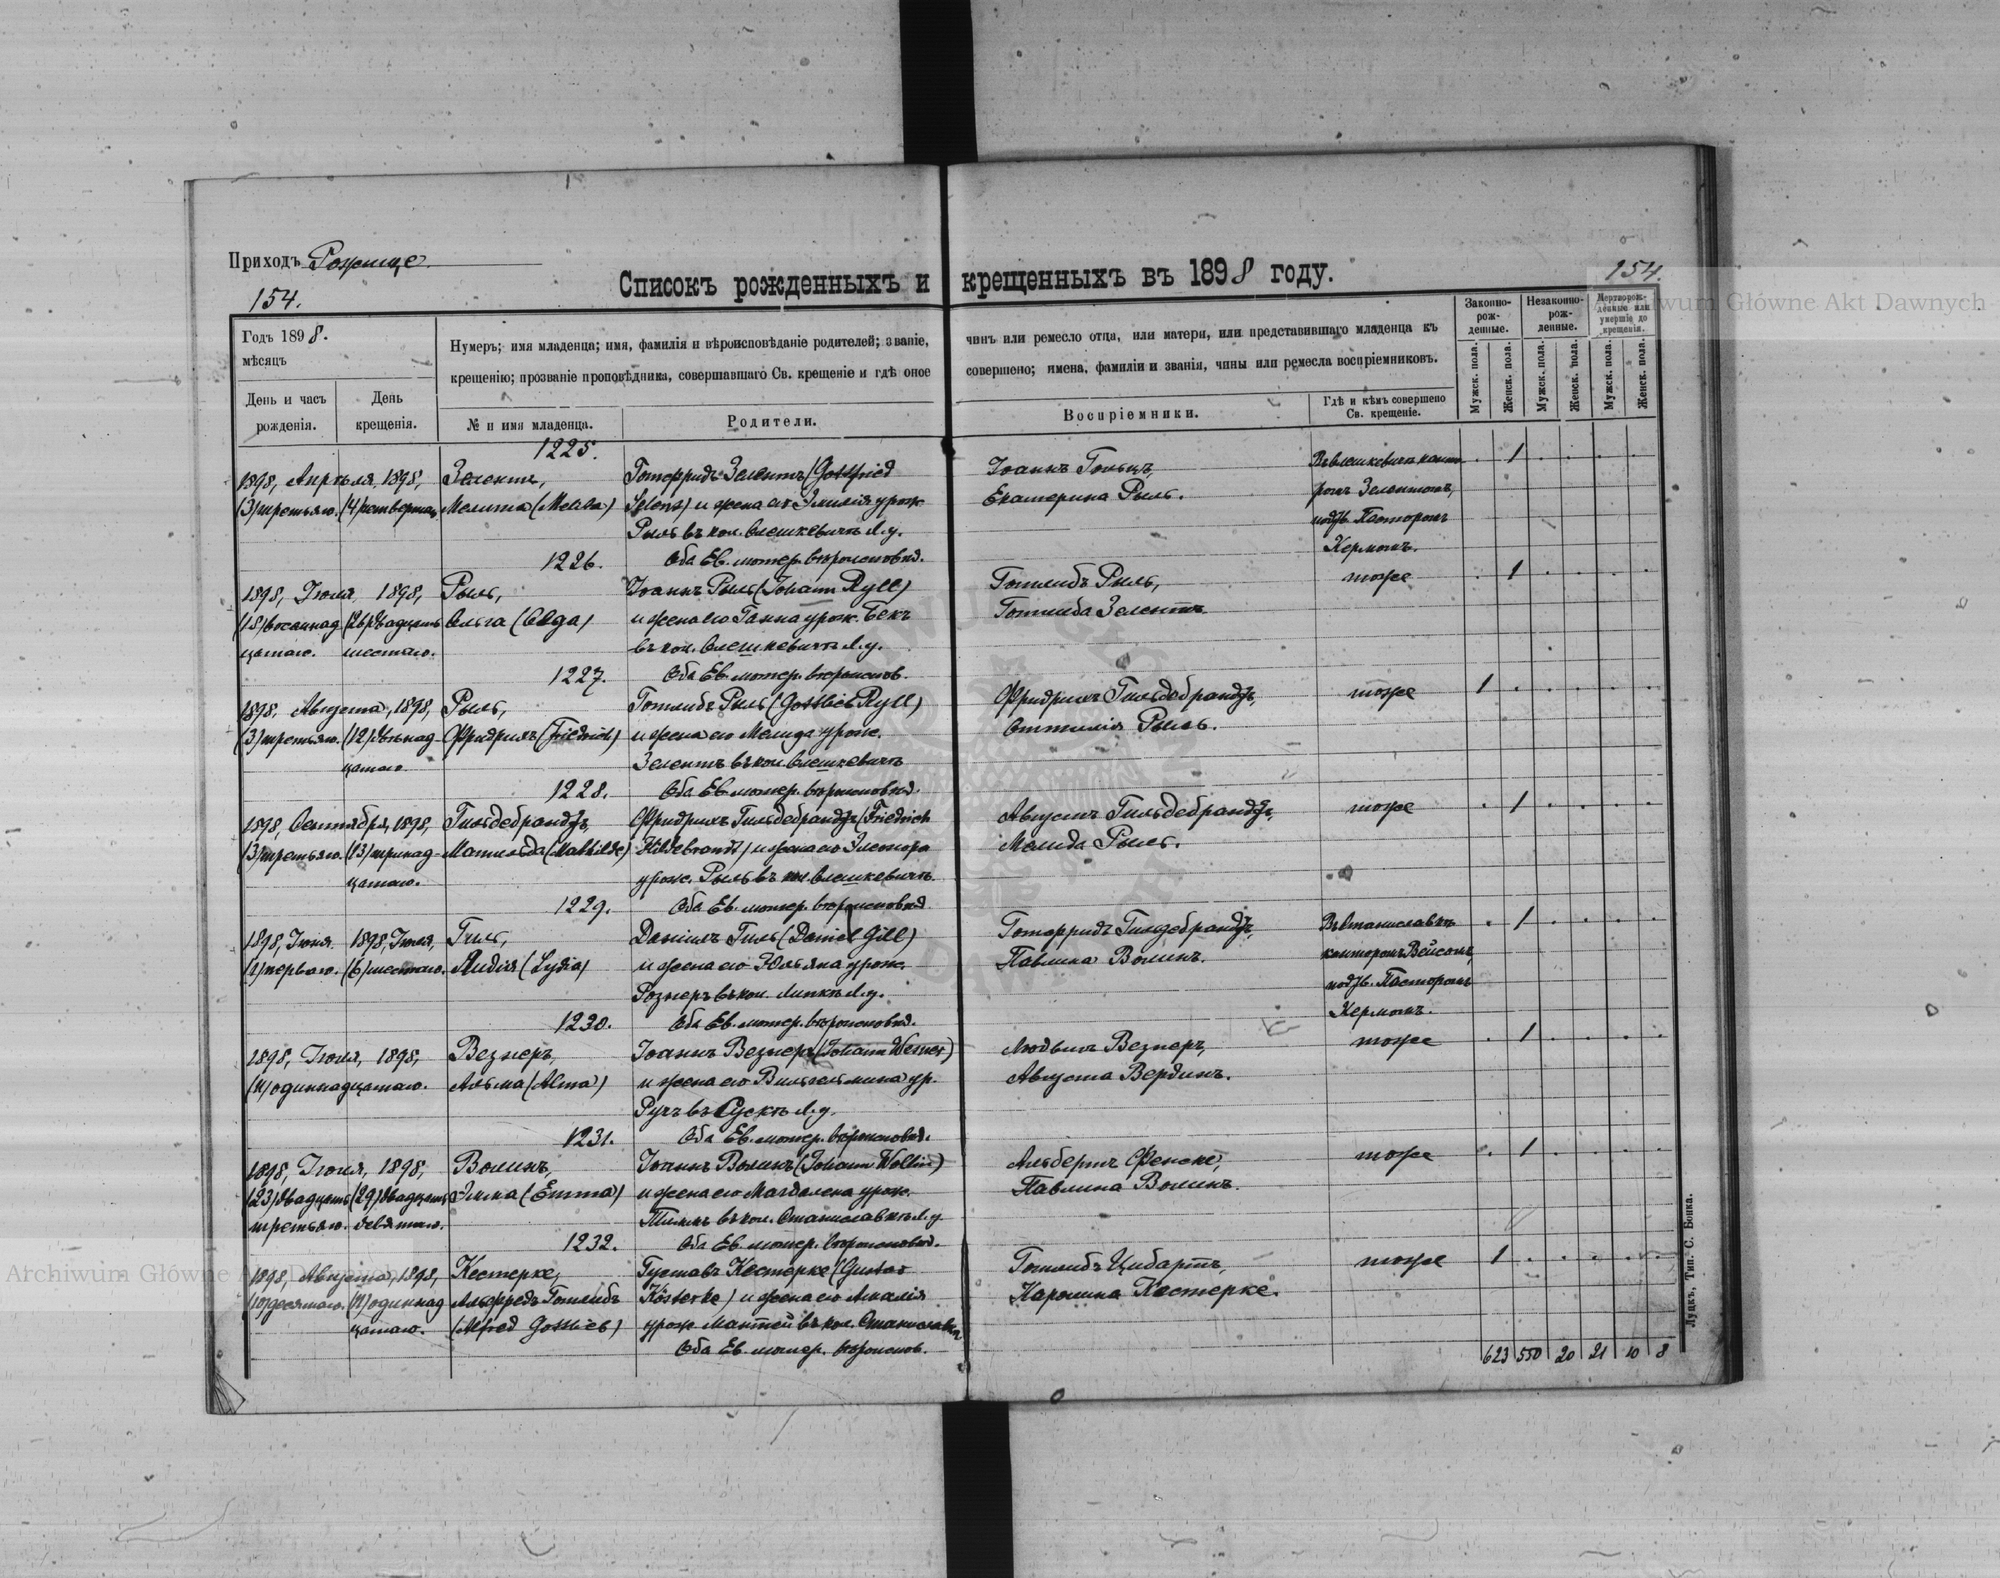 Приходъ Рожище.
Списокъ рожденныхъ и крещенныхъ въ 1898 году.
154.
154.
Годъ 1898.
мѣсяцъ
День и часъ рожденія.
День крещенія.
Нумеръ; имя младенца; имя, фамилія и вѣроисповѣданіе родителей; званіе, чинъ или ремесло отца, или матери, или представившаго младенца къ
крещенію; прозваніе проповѣдника, совершавшаго Св. крещеніе и гдѣ оное совершено; имена, фамиліи и званія, чины или ремесла воспріемниковъ.
№ и имя младенца.
Родители.
Воспріемники.
Гдѣ и кѣмъ совершено Св. крещеніе.
Законно-рож-денные.
Незаконно-рож-денные.
Мертворож-денные или умершіе до крещенія.
Мужск. пола.
Женск. пола.
Мужск. пола.
Женск. пола.
Мужск. пола.
Женск. пола.
1225.
1898, Апрѣля, 1898, Зелентъ, Готфридъ Зелентъ (Gottfried Іоаннъ Гольцъ, 1
(3) третьяго. (4) четвертаго Мелита (Melita) Selent) и жена его Эмилія урож. Екатерина Рыль. Зелентомъ,
Рыль въ кол. Олешкевичъ Л. у. подтв. Пасторомъ
Оба Ев. лютер. вѣроисповѣд. Кермомъ.
1226.
1898, Іюля, 1898, Рыль, Іоаннъ Рыль (Johann Ryll) Готлибъ Рыль, тоже 1
(18) восемнад (26) двадцать Ольга (Olga) и жена его Ганна урож. Бекъ Готлиба Зелентъ
цатаго. шестаго. въ кол. Олешкевичъ Л. у.
Оба Ев. лютер. вѣроиспов.
1227.
1898, Августа, 1898, Рыль, Готлибъ Рыль (Gottlieb Ryll) Фридрихъ Гильдебрандъ, тоже 1
(3) третьяго. (12) двѣнад Фридрихъ (Friedrich) и жена его Мелида урож. Оттилія Рыль.
цатаго. Зелентъ въ кол. Олешкевичъ
Оба Ев. лютер. вѣроисповѣд.
1228.
1898, Сентября, 1898, Гильдебрандъ, Фридрихъ Гильдебрандъ (Friedrich Августъ Гильдебрандъ, тоже 1
(3) третьяго. (13) тринад- Матильда (Mathilde) Hildebrandt) и жена его Элеонора Мелида Рыль.
цатаго. урож. Рыль въ кол. Олешкевичъ.
Оба Ев. лютер. вѣроисповѣд
1229.
1898, Іюня 1898, Іюля, Гиль, Даніилъ Гиль (Daniel Gill) Готфридъ Гилдебрандъ, Въ Станиславкѣ 1
(1) перваго. (6) шестаго. Лидія (Lydia) и жена его Юльяна урож. Павлина Волинъ. канторомъ Вейсомъ,
Рознеръ въ кол. Липкѣ Л. у. подтв. Пасторомъ
Оба Ев. лютер. вѣроисповѣд. Кермомъ.
1230.
1898, Іюля, 1898, Везнеръ, Іоаннъ Везнеръ (Johann Wesner) Людвигъ Везнеръ, тоже 1
(11) одиннадцатаго. Альма (Alma) и жена его Вильгельмина ур. Августа Вердинъ.
Оба Ев. лютер. вѣроисповѣд.
1231.
1898, Іюля, 1898, Волинъ, Іоаннъ Волинъ (Johann Wollin) Альбертъ Фенске, тоже 1
(23) двадцать (29) двадцать Эмма (Emma) и жена его Магдалена урож. Павлина Волинъ.
третьяго. девятаго. въ кол. Станиславкѣ Л. у.
Оба Ев. лютер. вѣроисповѣд.
1232.
1898, Августа, 1898, Кестерке, Густавъ Кестерке (Gustav Готлибъ Цибартъ, тоже 1
(10) десятаго. (11) одиннад Альфредъ Готлибъ Kösterke) и жена его Амалія Каролина Кестерке.
цатаго. (Alfred Gottlieb) урож. Мантей въ кол. Станиславка
Оба Ев. лютер. вѣроиспов.
623 550 20 21 10 8
Луцкъ, Тип. С. Бонка.
Archiwum Główne Akt Dawnych
Archiwum Główne Akt Dawnych